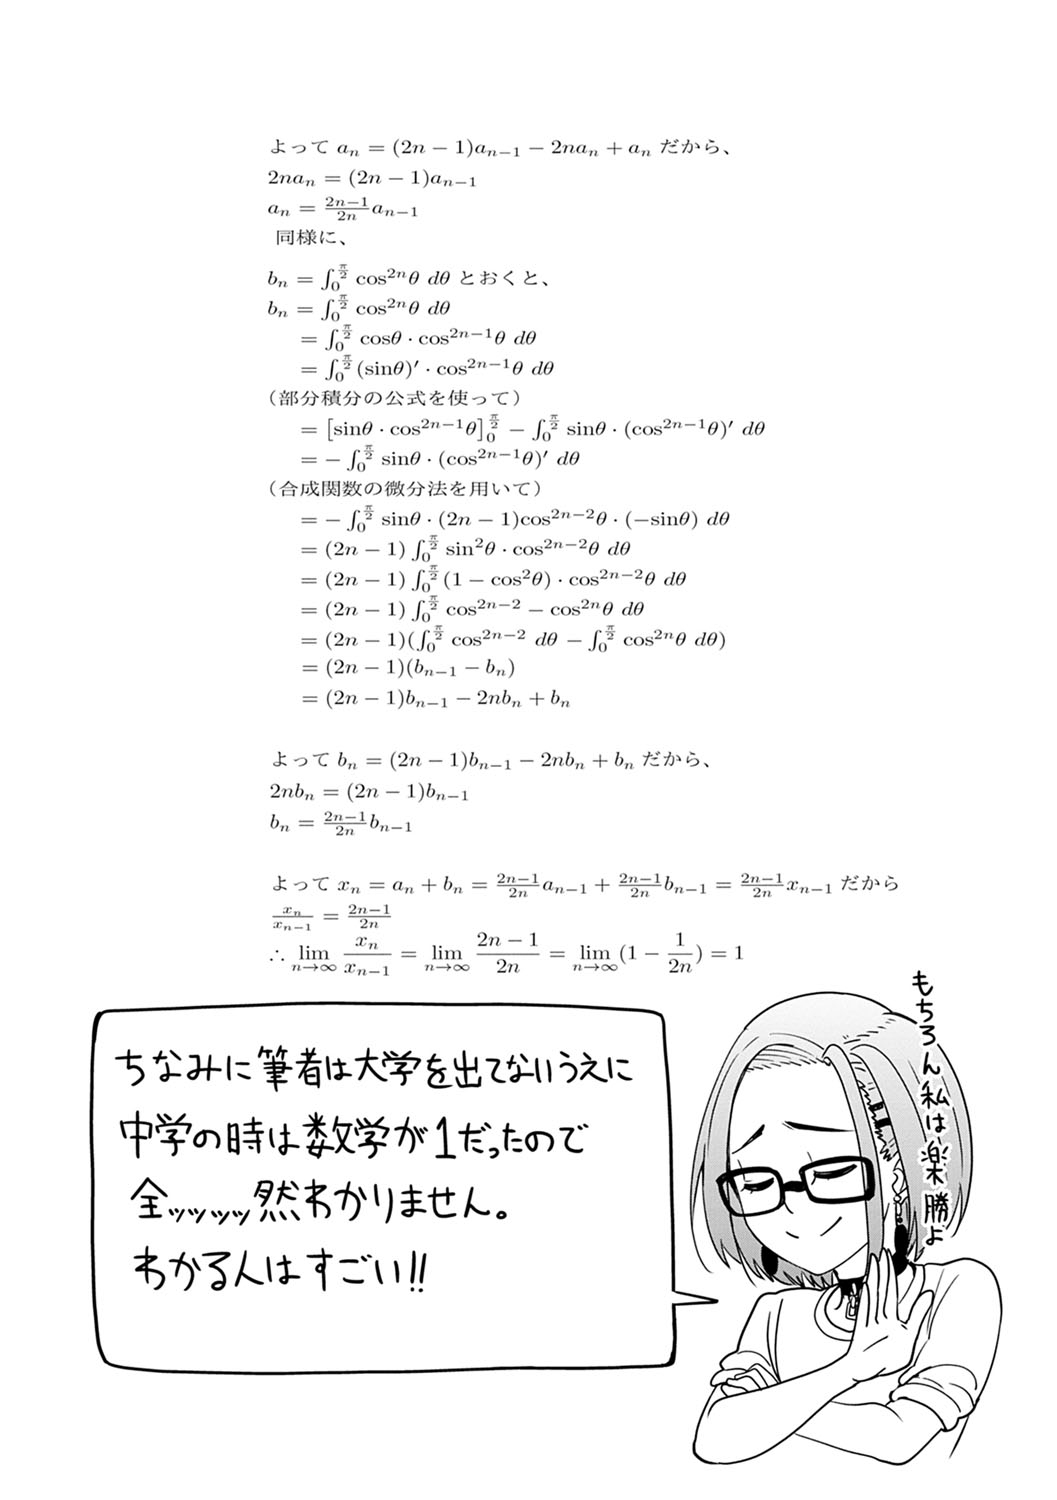 よって aₙ = (2n − 1)aₙ₋₁ − 2naₙ + aₙ だから、
2naₙ = (2n − 1)aₙ₋₁
aₙ = \frac{2n−1}{2n}aₙ₋₁
同様に、
bₙ = ∫_0^{\frac{π}{2}} cos²ⁿθ dθ とおくと、
bₙ = ∫_0^{\frac{π}{2}} cos²ⁿθ dθ
= ∫_0^{\frac{π}{2}} cosθ · cos²ⁿ⁻¹θ dθ
= ∫_0^{\frac{π}{2}} (sinθ)′ · cos²ⁿ⁻¹θ dθ
（部分積分の公式を使って）
= [sinθ · cos²ⁿ⁻¹θ]_0^{\frac{π}{2}} − ∫_0^{\frac{π}{2}} sinθ · (cos²ⁿ⁻¹θ)′ dθ
= − ∫_0^{\frac{π}{2}} sinθ · (cos²ⁿ⁻¹θ)′ dθ
（合成関数の微分法を用いて）
= − ∫_0^{\frac{π}{2}} sinθ · (2n − 1)cos²ⁿ⁻²θ · (−sinθ) dθ
= (2n − 1) ∫_0^{\frac{π}{2}} sin²θ · cos²ⁿ⁻²θ dθ
= (2n − 1) ∫_0^{\frac{π}{2}} (1 − cos²θ) · cos²ⁿ⁻²θ dθ
= (2n − 1) ∫_0^{\frac{π}{2}} cos²ⁿ⁻² − cos²ⁿθ dθ
= (2n − 1)(∫_0^{\frac{π}{2}} cos²ⁿ⁻² dθ − ∫_0^{\frac{π}{2}} cos²ⁿθ dθ)
= (2n − 1)(bₙ₋₁ − bₙ)
= (2n − 1)bₙ₋₁ − 2nbₙ + bₙ
よって bₙ = (2n − 1)bₙ₋₁ − 2nbₙ + bₙ だから、
2nbₙ = (2n − 1)bₙ₋₁
bₙ = \frac{2n−1}{2n}bₙ₋₁
よって xₙ = aₙ + bₙ = \frac{2n−1}{2n}aₙ₋₁ + \frac{2n−1}{2n}bₙ₋₁ = \frac{2n−1}{2n}xₙ₋₁ だから
\frac{xₙ}{xₙ₋₁} = \frac{2n−1}{2n}
∴ lim_{n→∞} \frac{xₙ}{xₙ₋₁} = lim_{n→∞} \frac{2n − 1}{2n} = lim_{n→∞} (1 − \frac{1}{2n}) = 1
もちろん私は楽勝よ
ちなみに筆者は大学を出てないうえに
中学の時は数学が1だったので
全ッッッッ然わかりません。
わかる人はすごい!!